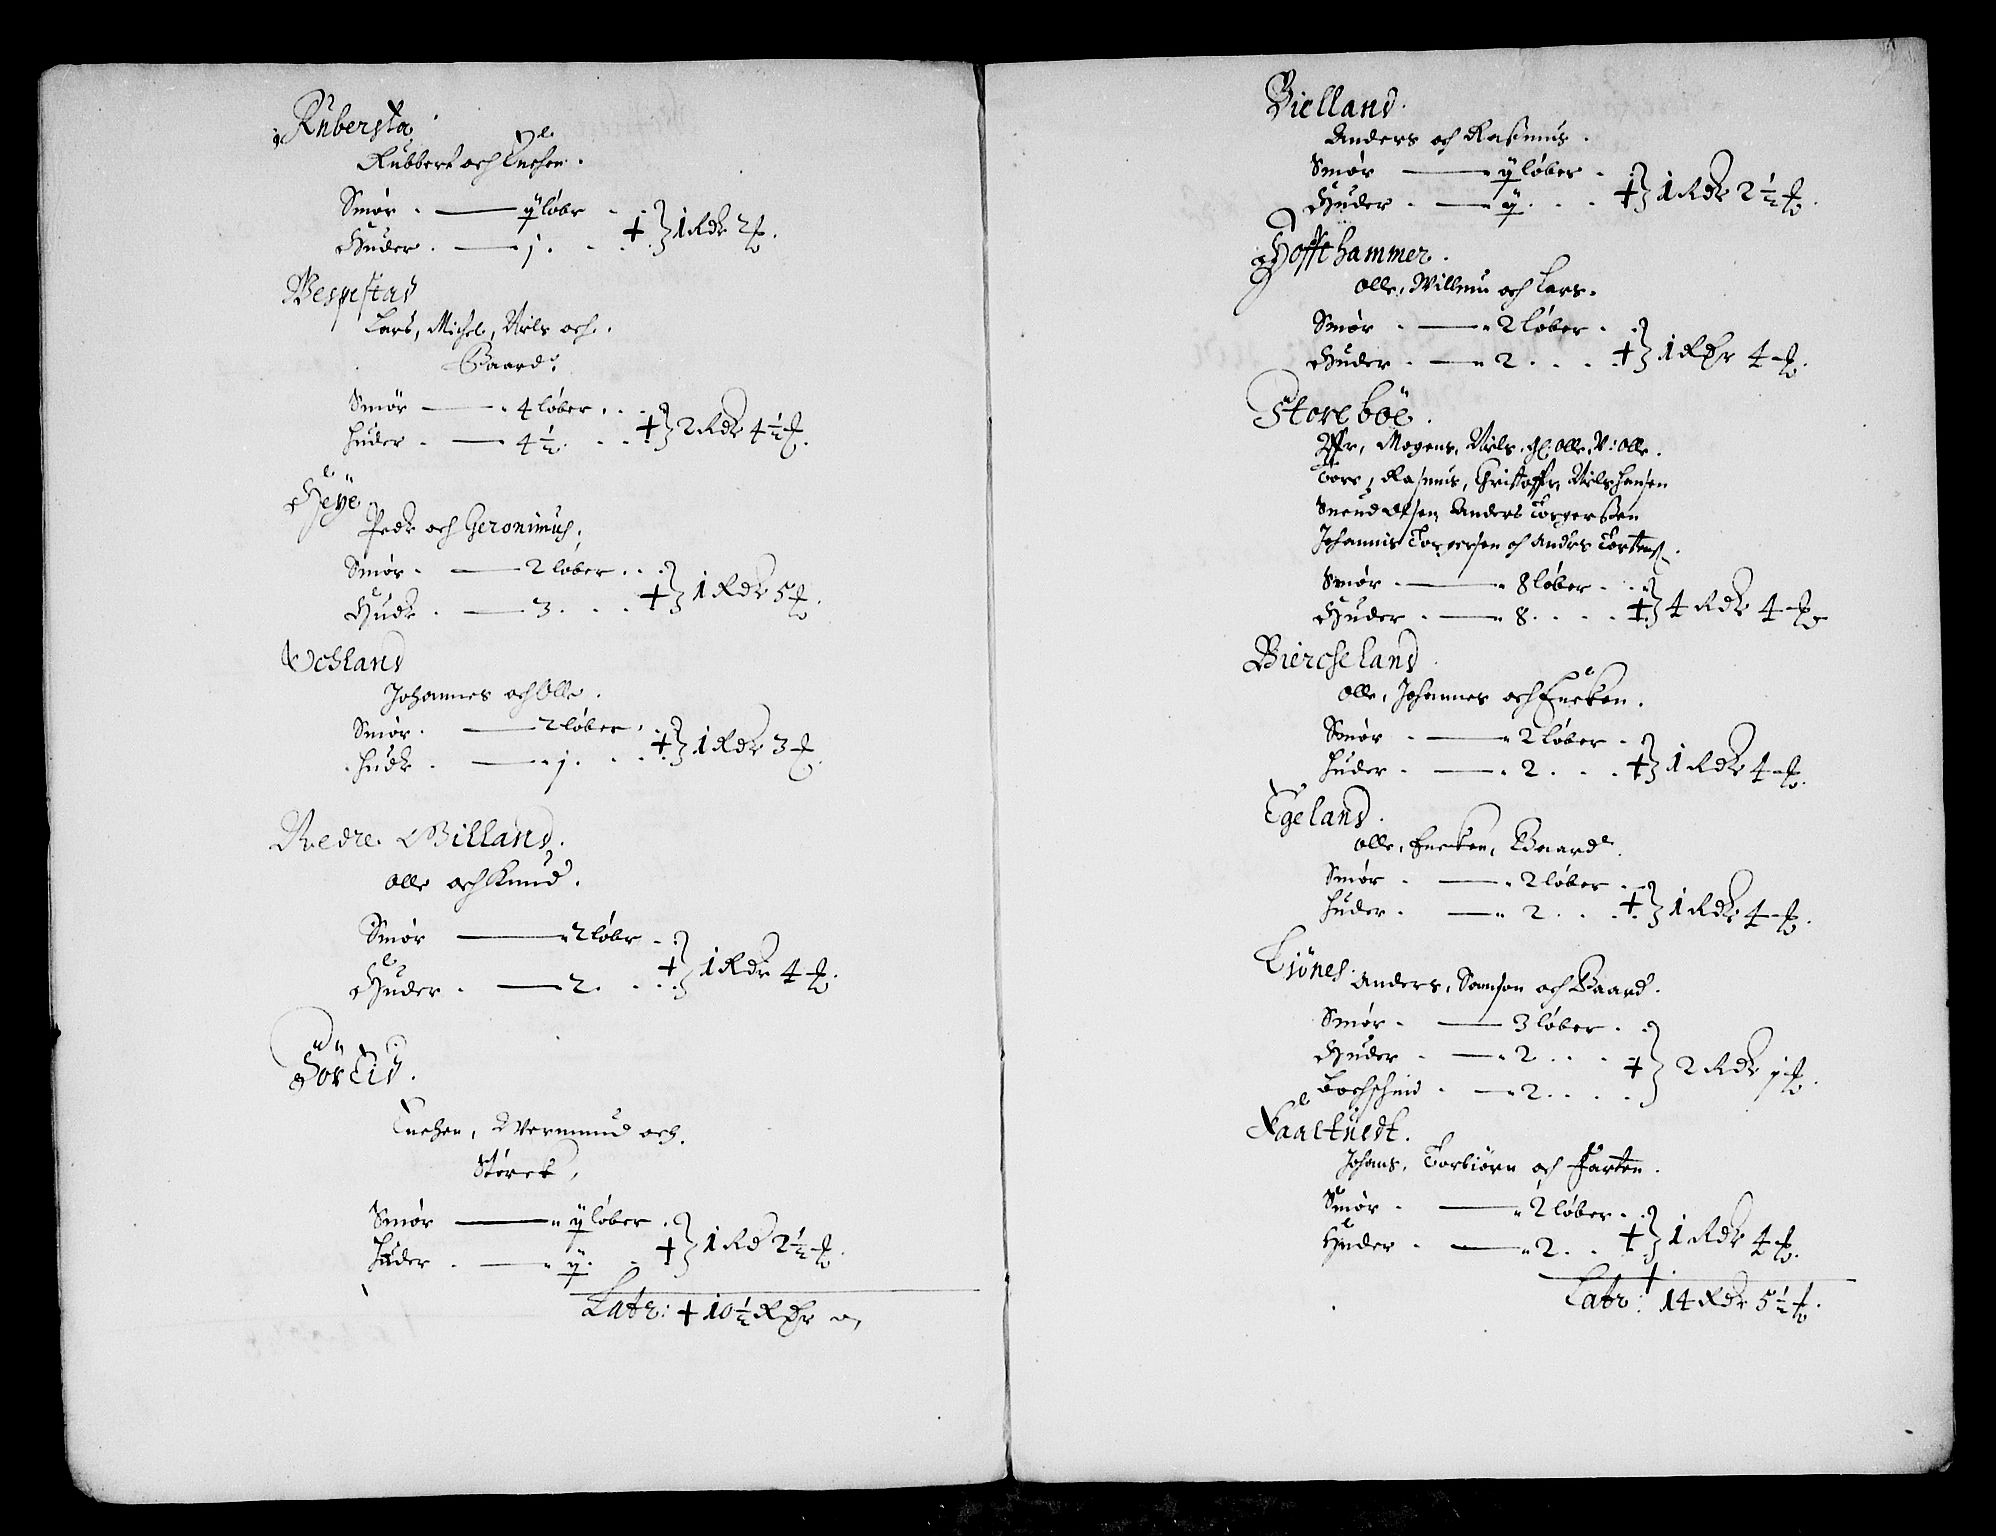 Rubersta
Rubbert och Enchen.
Smør . — ij løbr . .
Huder . — j. . . + } 1 Rdr 2 ß.
Vespestad
Lars, Michel, Niels och.
Baard.
Smör — 4 löber . . .
Huder . — 4 ½. . . . + } 2 Rdr 4 ½ ß.
Heye
Peder och Geronimus.
Smör . — 2 löber . . .
Huder . — 3. . . . + } 1 Rdr 5 ß.
Ochland
Johannes och Olle.
Smör . — 2 löber . .
Huder . — j. . . . + } 1 Rdr 3 ß.
Nedre Billand.
Olle och Knud.
Smör — 2 löbr . .
Huder . — 2. . . . + } 1 Rdr 4 ß.
Enchen, Wermund och.
Störck,
Smör — ij löber . .
Huder . — ij. . + } 1 Rd 2 ½ ß.
Latr: + 10 ½ Rdr
Bielland.
Anders och Rasmus.
Smör — ij löber .
Huder . — ij. . . + } 1 Rdr 2 ½ ß.
Hoffthammer.
Olle, Willum och Lars.
Smör . — 2 löber . .
Huder . — 2 . . . + } 1 Rdr 4 ß.
Storeböe.
Iffr, Mogens, Niels, gl: Olle, V: Olle.
Tore, Rasmus, Christoffr, Niels Hansen
Suend Olsen, Anders Torgerssen
Johannis Torgersen och Anders Tortens.
Smör . — 8 löber . .
Huder . — 8. . . . + } 4 Rdr 4 ß
Biercheland
Olle, Johannes och Encken.
Smör . — 2 löber . .
Huder . — 2 . . . + } 1 Rdr 4 ß.
Egeland.
Olle, Encken, Baard.
Smör . — 2 löber . .
Huder . — 2. . . + } 1 Rdr 4 ß.
Liönes. Anders, Samson och Baard.
Smör . — 3 löber . .
Huder . — 2. . . + } 2 Rdr j ß.
Bochschind . — 2. . . .
Faaltuedt.
Johans, Torbiörn och Farten.
Smör . — 2 löber . .
Huder . — 2. . + } 1 Rdr 4 ß.
Latr: + 14 Rdr 5 ½ ß.